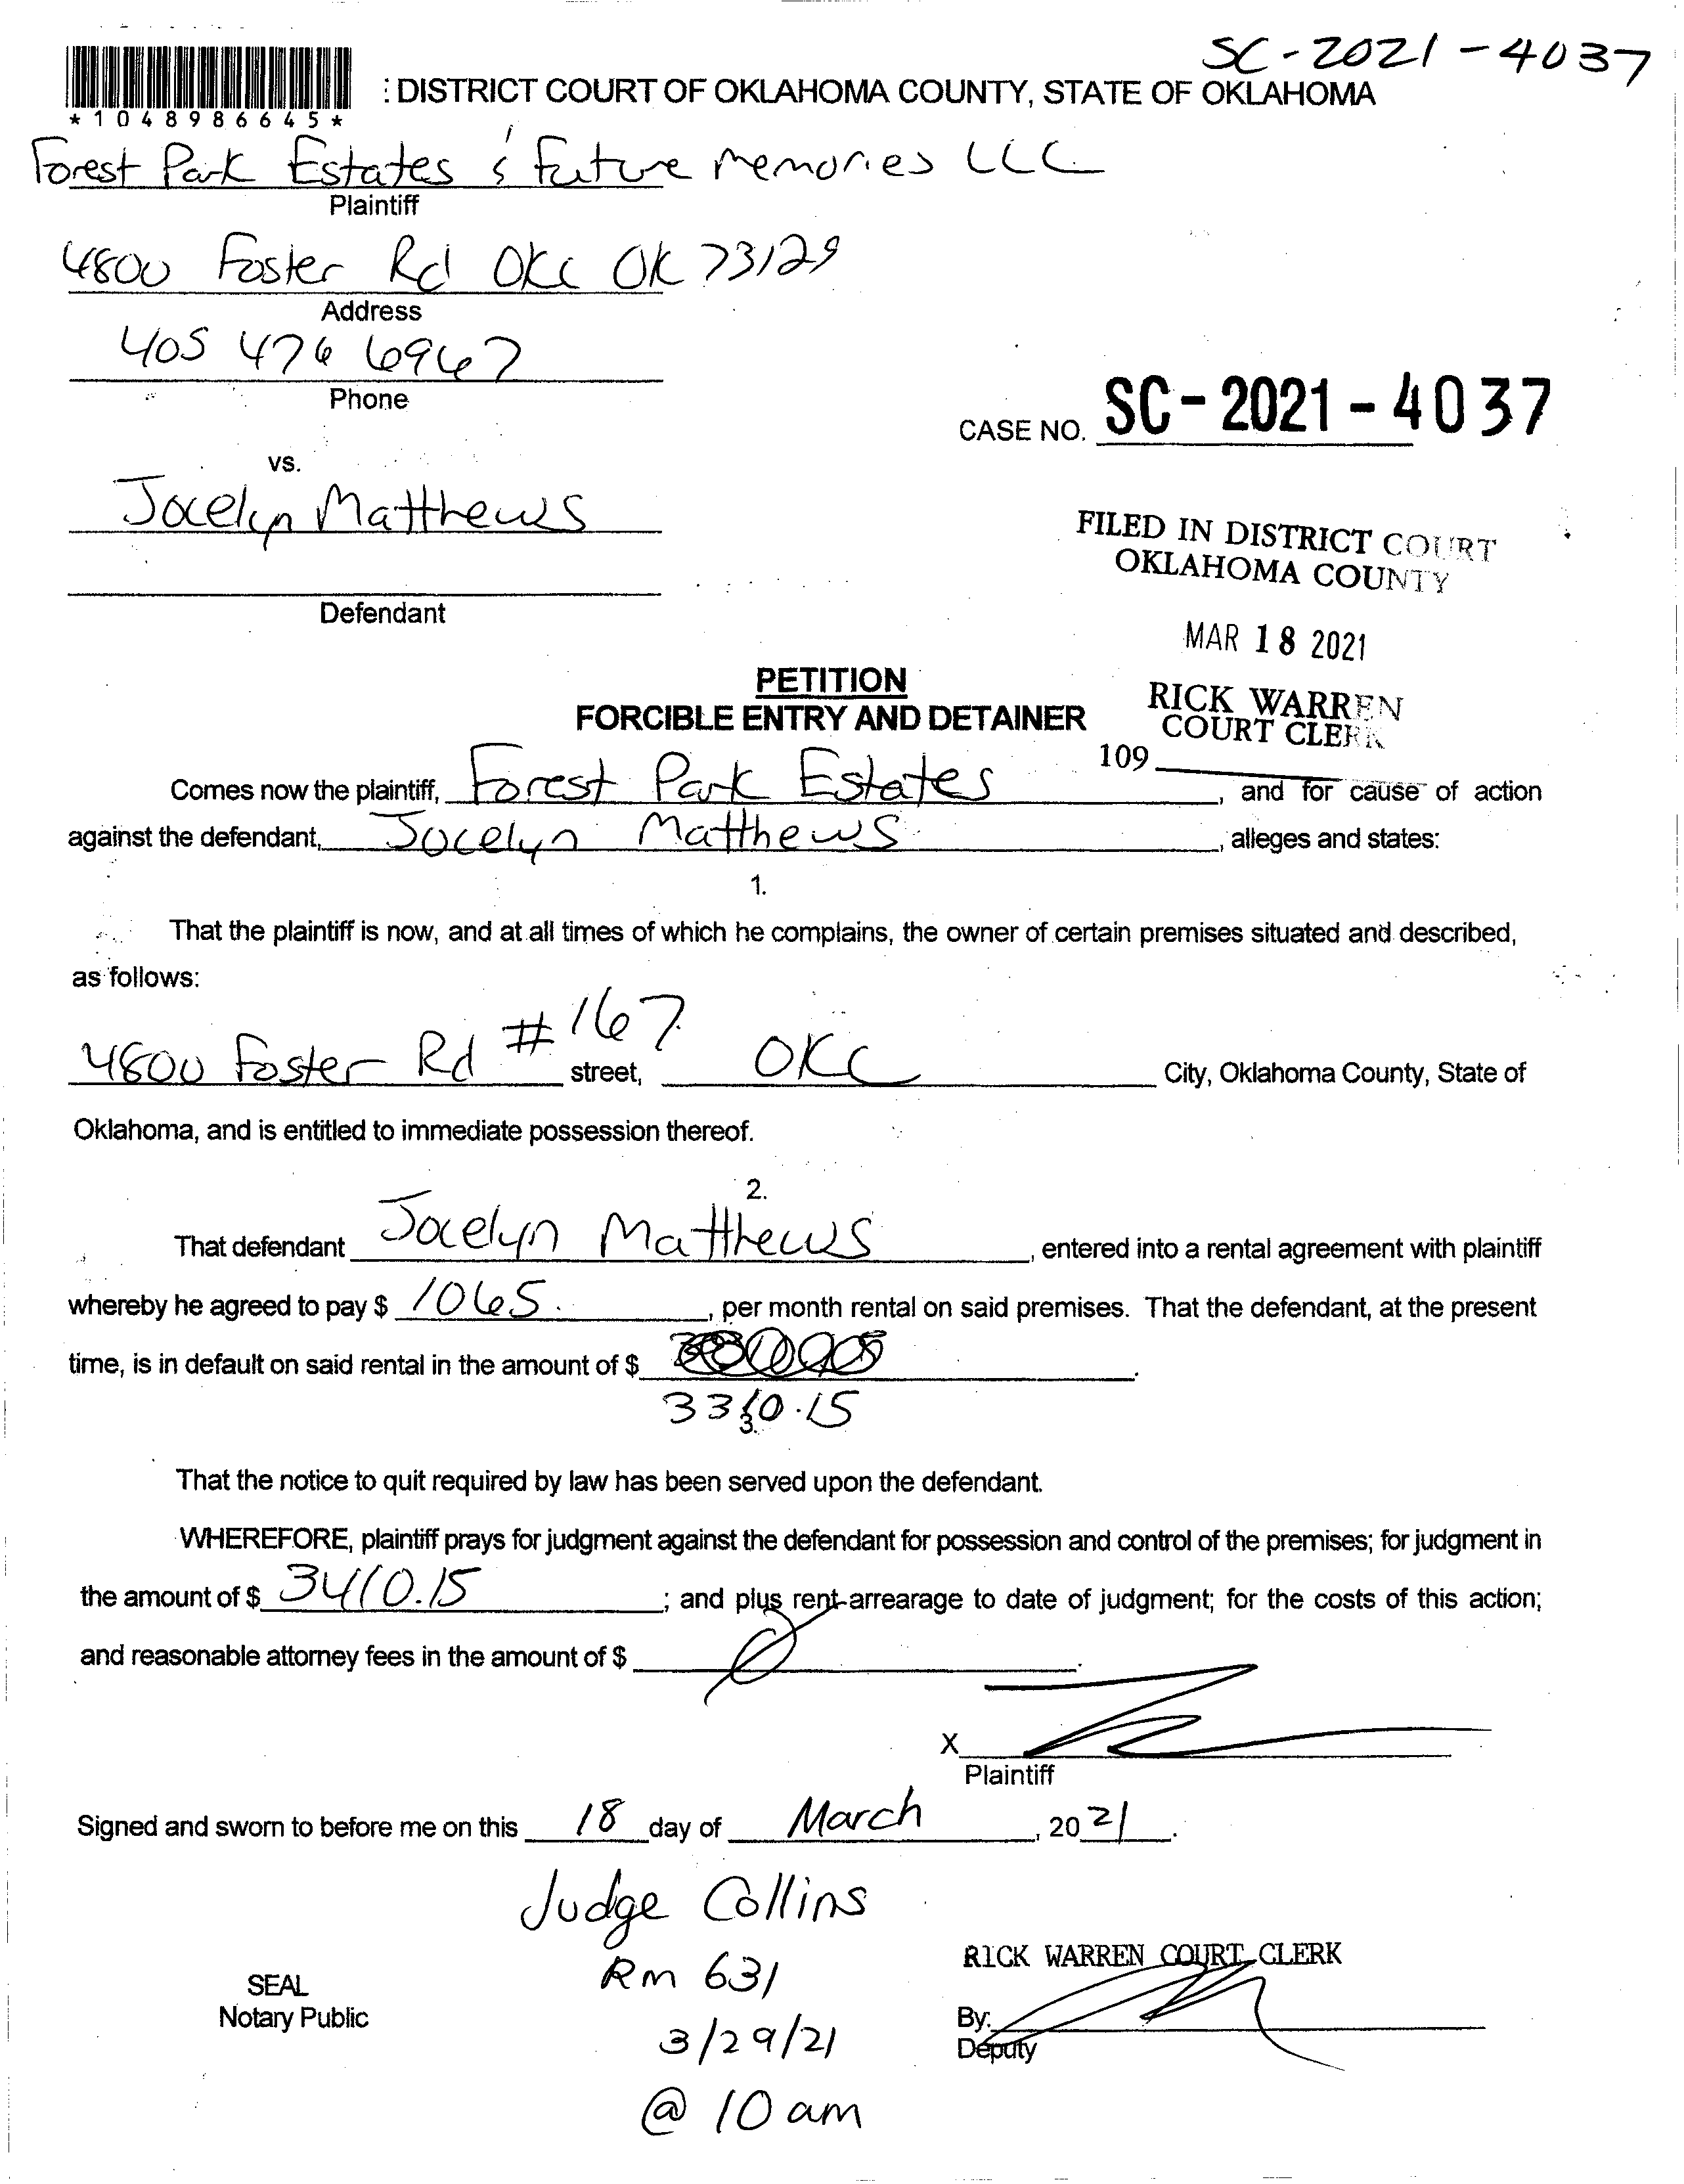 SC-2021-4037
: DISTRICT COURT OF OKLAHOMA COUNTY, STATE OF OKLAHOMA
*1048986645*
Forest Park Estates & Future Memories LLC
Plaintiff
4800 Foster Rd OKC OK 73129
Address
405 476 6967
Phone
CASE NO. SC-2021-4037
vs.
Jocelyn Matthews
FILED IN DISTRICT COURT
OKLAHOMA COUNTY
Defendant
MAR 18 2021
PETITION
RICK WARREN
FORCIBLE ENTRY AND DETAINER
COURT CLERK
109
Comes now the plaintiff, Forest Park Estates, and for cause of action
against the defendant, Jocelyn Matthews, alleges and states:
1.
That the plaintiff is now, and at all times of which he complains, the owner of certain premises situated and described,
as follows:
4800 Foster Rd #167 street, OKC City, Oklahoma County, State of
Oklahoma, and is entitled to immediate possession thereof.
2.
That defendant Jocelyn Matthews, entered into a rental agreement with plaintiff
whereby he agreed to pay $ 1065., per month rental on said premises. That the defendant, at the present
time, is in default on said rental in the amount of $ .
3.
That the notice to quit required by law has been served upon the defendant.
WHEREFORE, plaintiff prays for judgment against the defendant for possession and control of the premises; for judgment in
the amount of $ 3410.15; and plus rent arrearage to date of judgment; for the costs of this action;
and reasonable attorney fees in the amount of $ .
X
Plaintiff
Signed and sworn to before me on this 18 day of March, 2021.
Judge Collins
Rm 631
RICK WARREN COURT CLERK
SEAL
Notary Public
By:
3/29/21
Deputy
@ 10 am